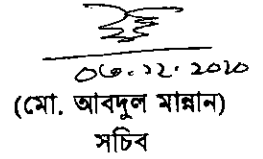 ০৬.১২.২০২০
(মো. আবদুল মান্নান)
সচিব